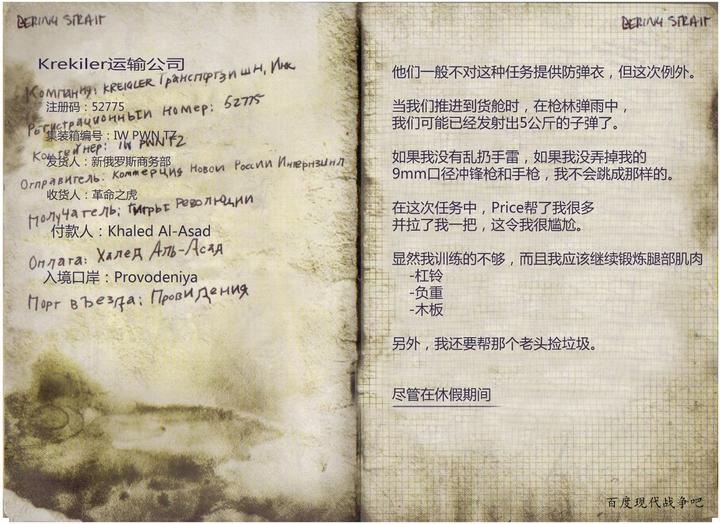 BERING STRAIT
Krekiler运输公司
Компания: KREIGLER Транспортэишн, Инк
注册码：52775
Регистрационный номер: 52775
集装箱编号：IW PWN TZ
Контейнер: IW PWNTZ
发货人：新俄罗斯商务部
Отправитель: Коммерция Новой России Интернэшнл
收货人：革命之虎
Получатель: Тигры Революции
付款人：Khaled Al-Asad
Оплата: Халед Аль-Асад
入境口岸：Provodeniya
Порт въезда: Провидения
BERING STRAIT
他们一般不对这种任务提供防弹衣，但这次例外。
当我们推进到货舱时，在枪林弹雨中，
我们可能已经发射出5公斤的子弹了。
如果我没有乱扔手雷，如果我没弄掉我的
9mm口径冲锋枪和手枪，我不会跳成那样的。
在这次任务中，Price帮了我很多
并拉了我一把，这令我很尴尬。
显然我训练的不够，而且我应该继续锻炼腿部肌肉
-杠铃
-负重
-木板
另外，我还要帮那个老头捡垃圾。
尽管在休假期间
百度现代战争吧